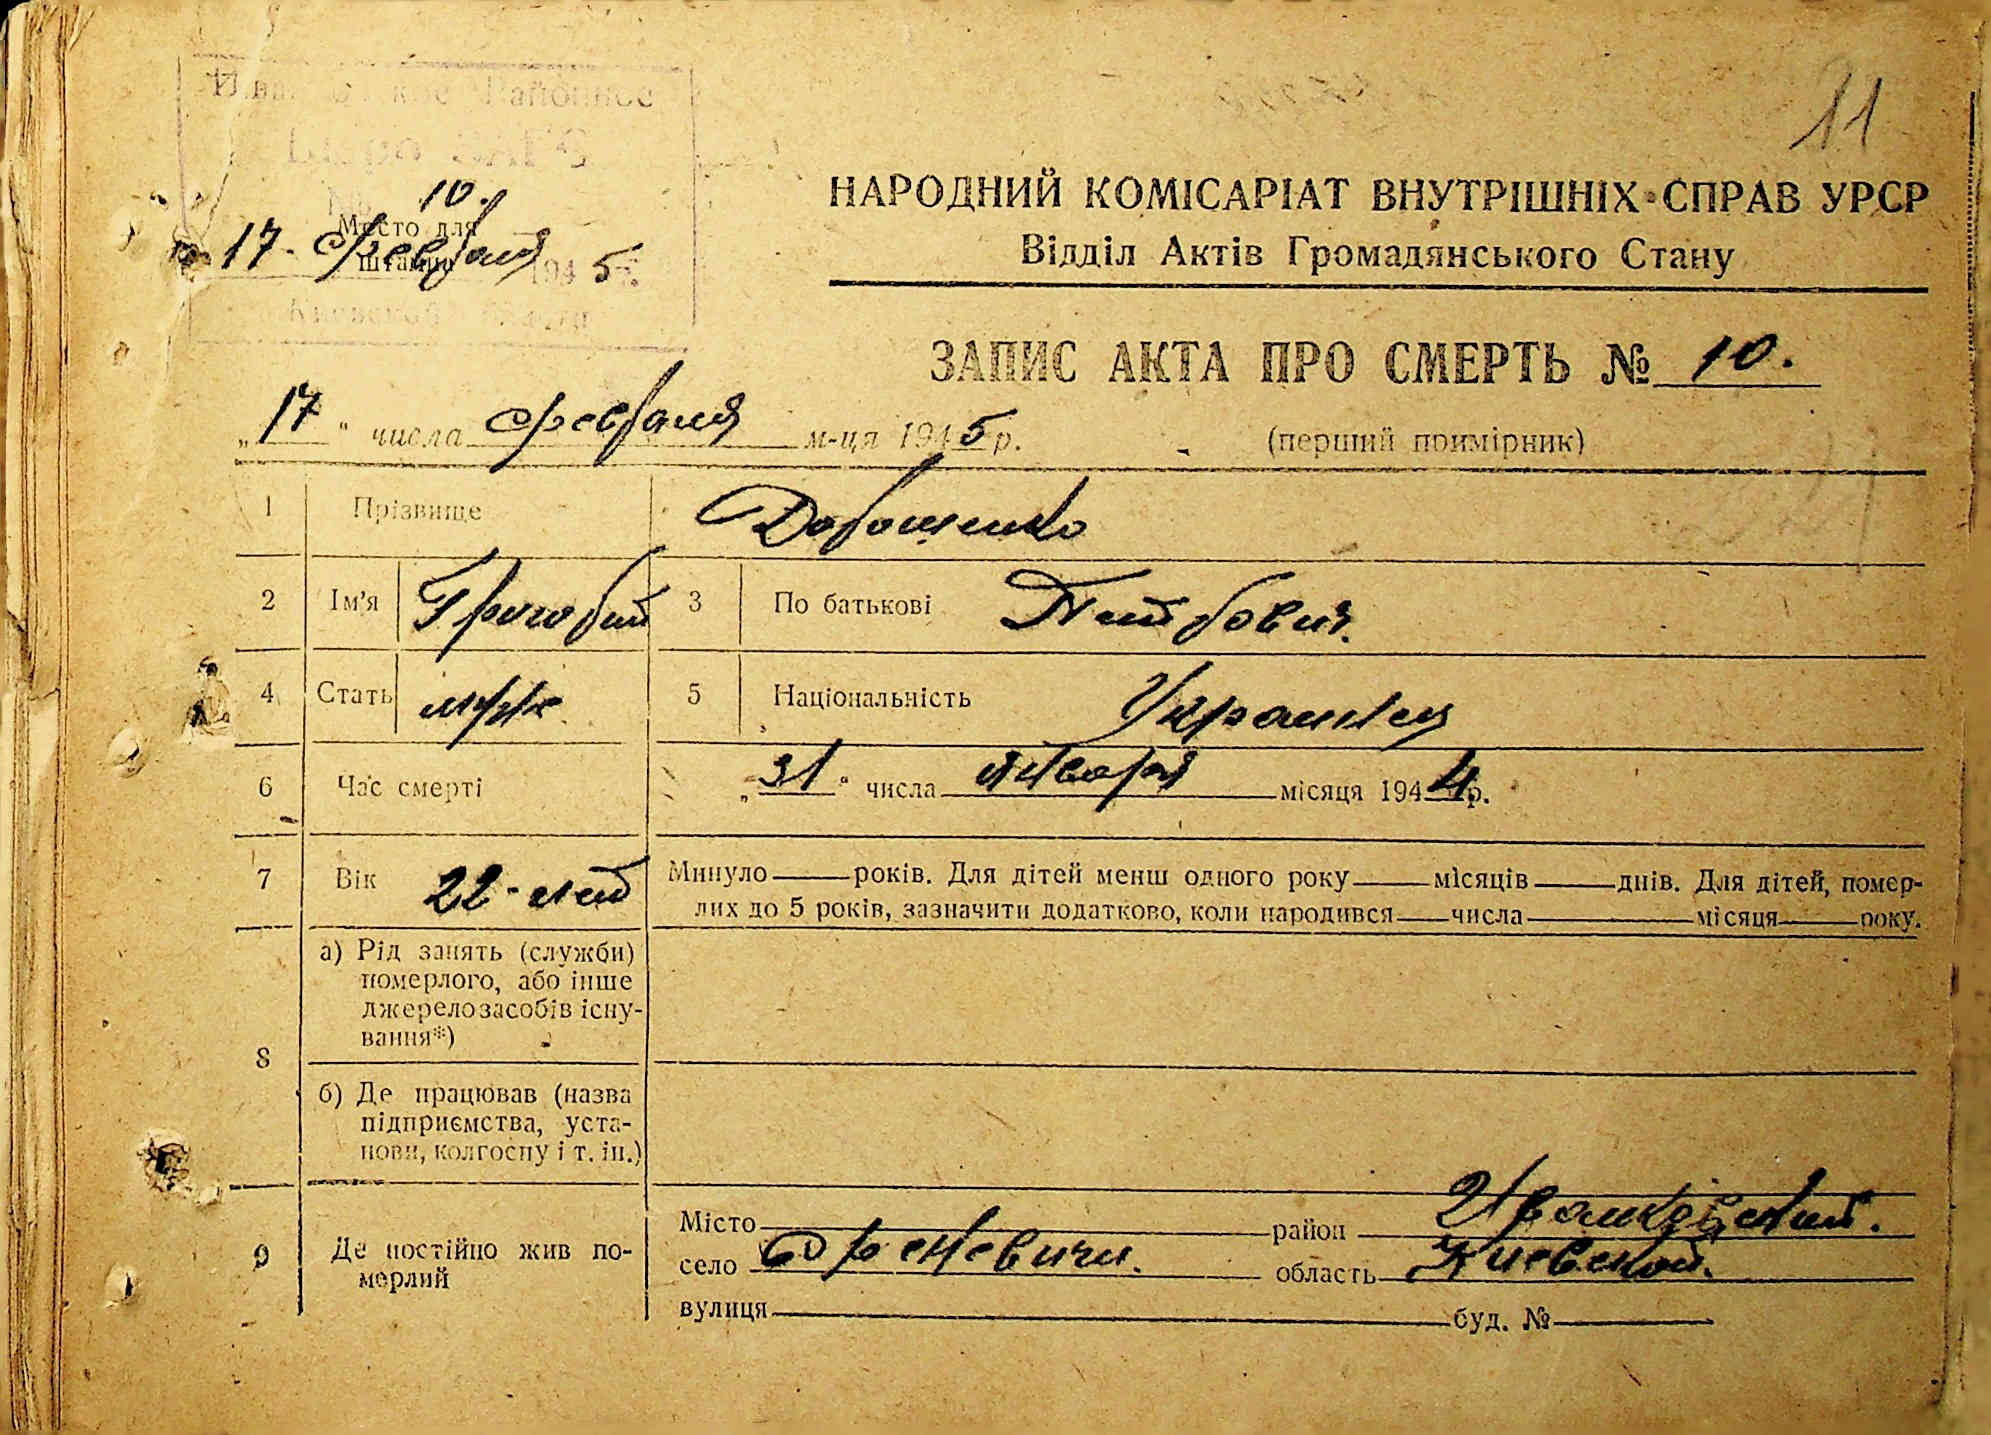 11
Районное
Бюро ЗАГС
№ 10.
Місто для
штампу
17. февраля 1945 г.
Киевской области
НАРОДНИЙ КОМІСАРІАТ ВНУТРІШНІХ СПРАВ УРСР
Відділ Актів Громадянського Стану
ЗАПИС АКТА ПРО СМЕРТЬ № 10.
„17" числа февраля м-ця 1945 р.
(перший примірник)
1 Прізвище
2 Ім'я Григорий 3 По батькові Петрович.
4 Стать муж 5 Національність Украинец
6 Час смерті „31" числа января місяця 1944 р.
7 Вік 22-лет Минуло років. Для дітей менш одного року місяців днів. Для дітей, помер-
лих до 5 років, зазначити додатково, коли народився числа місяця року.
8 а) Рід занять (служби)
померлого, або інше
джерело засобів існу-
вання*)
б) Де працював (назва
підприємства, уста-
нови, колгоспу і т. ін.)
9 Де постійно жив по-
мерлий
Місто район Иванковский.
село Ореневичи. область Киевской.
вулиця буд. №